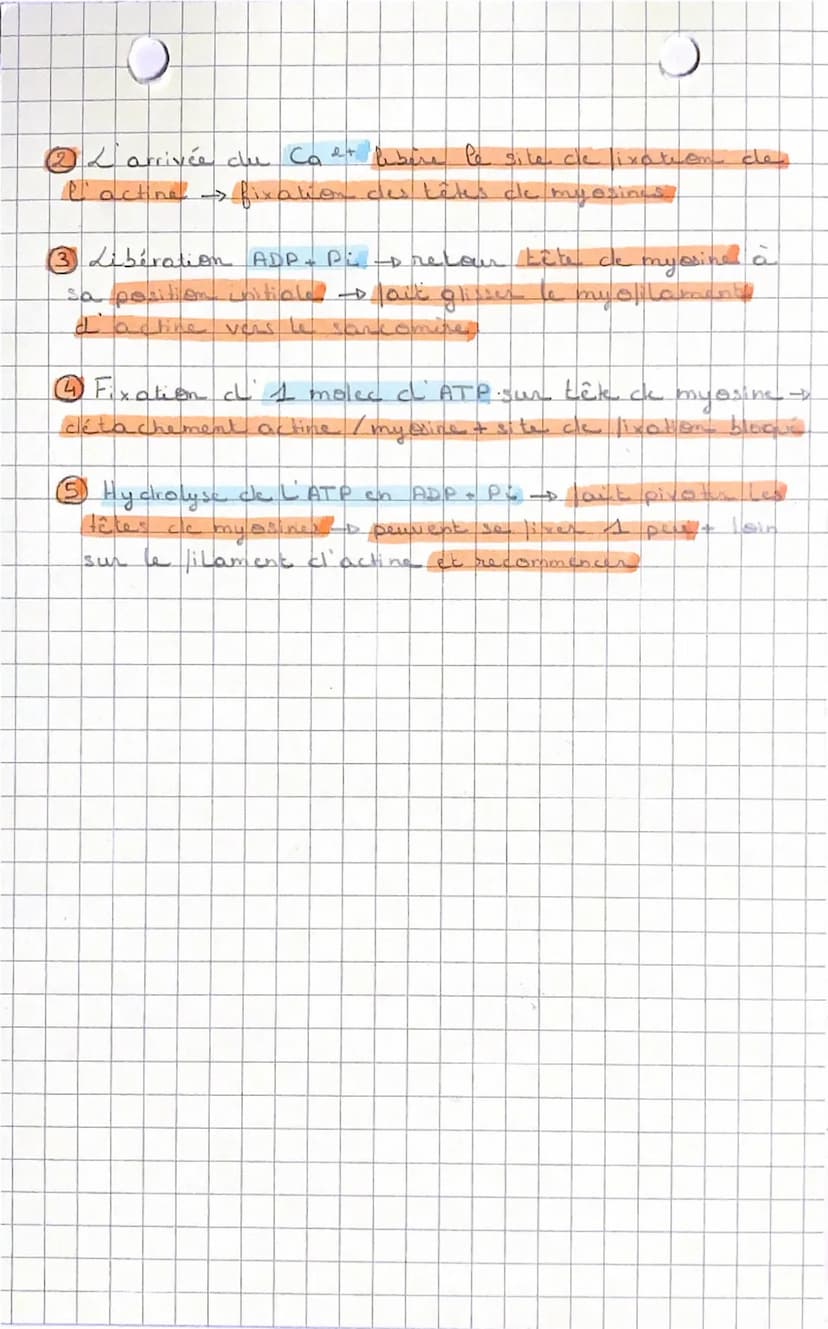 ② L'arrivée du Ca²⁺ libère le site de fixation de
l'actine → fixation des têtes de myosines
③ Libération ADP + Pi → retour tête de myosine à
sa position initiale → fait glisser le myofilament
d'actine vers le sarcomère
④ Fixation d'1 molec d'ATP sur tête de myosine →
détachement actine / myosine + site de fixation bloqué
⑤ Hydrolyse de L'ATP en ADP + Pi → fait pivoter les
têtes de myosines → peuvent se fixer 1 peu + loin
sur le filament d'actine et recommencer